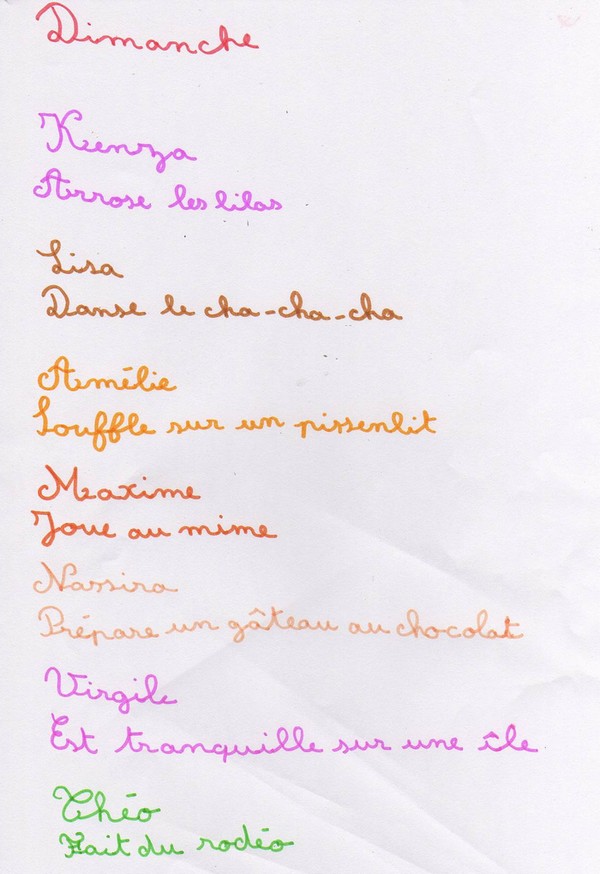 Dimanche
Kenza
Arrose les lilas
Lisa
Danse le cha-cha-cha
Amélie
Souffle sur un pissenlit
Maxime
Joue au mime
Nassira
Prépare un gâteau au chocolat
Virgile
Est tranquille sur une île
Théo
Fait du rodéo